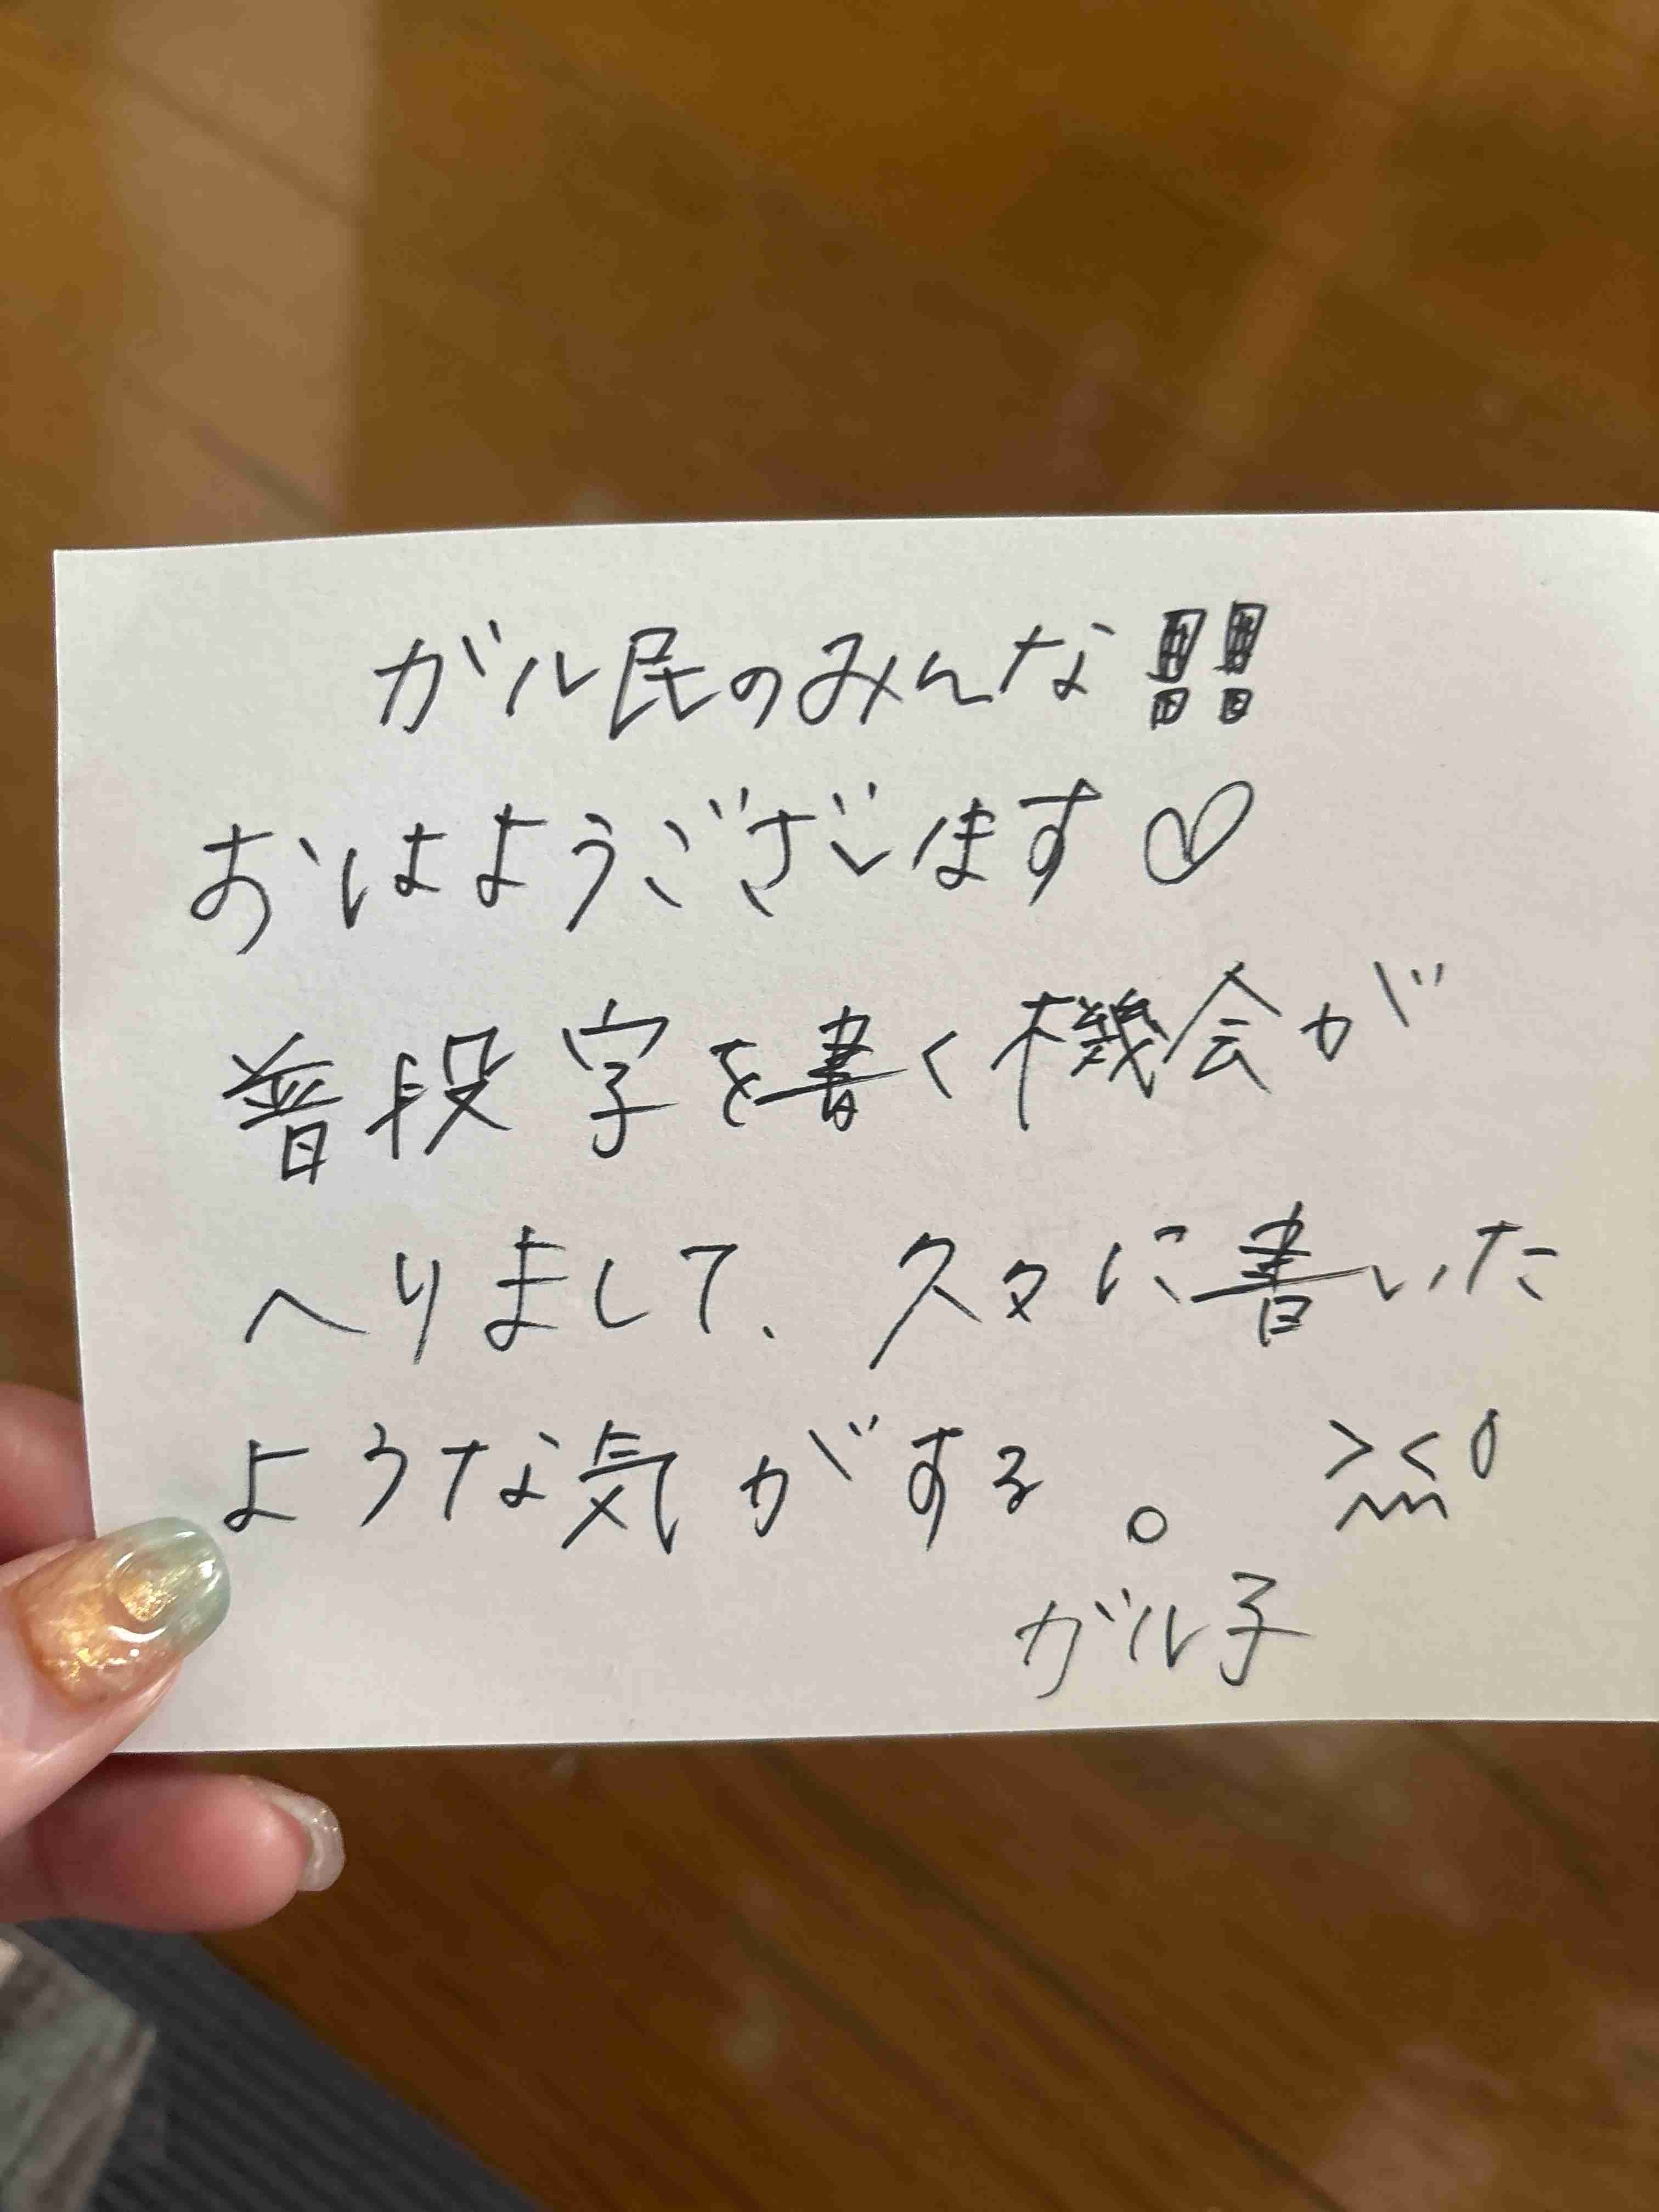 ガル民のみんな!!
おはようございます♡
普段字を書く機会が
へりまして、久々に書いた
ような気がする。 ><
ガル子